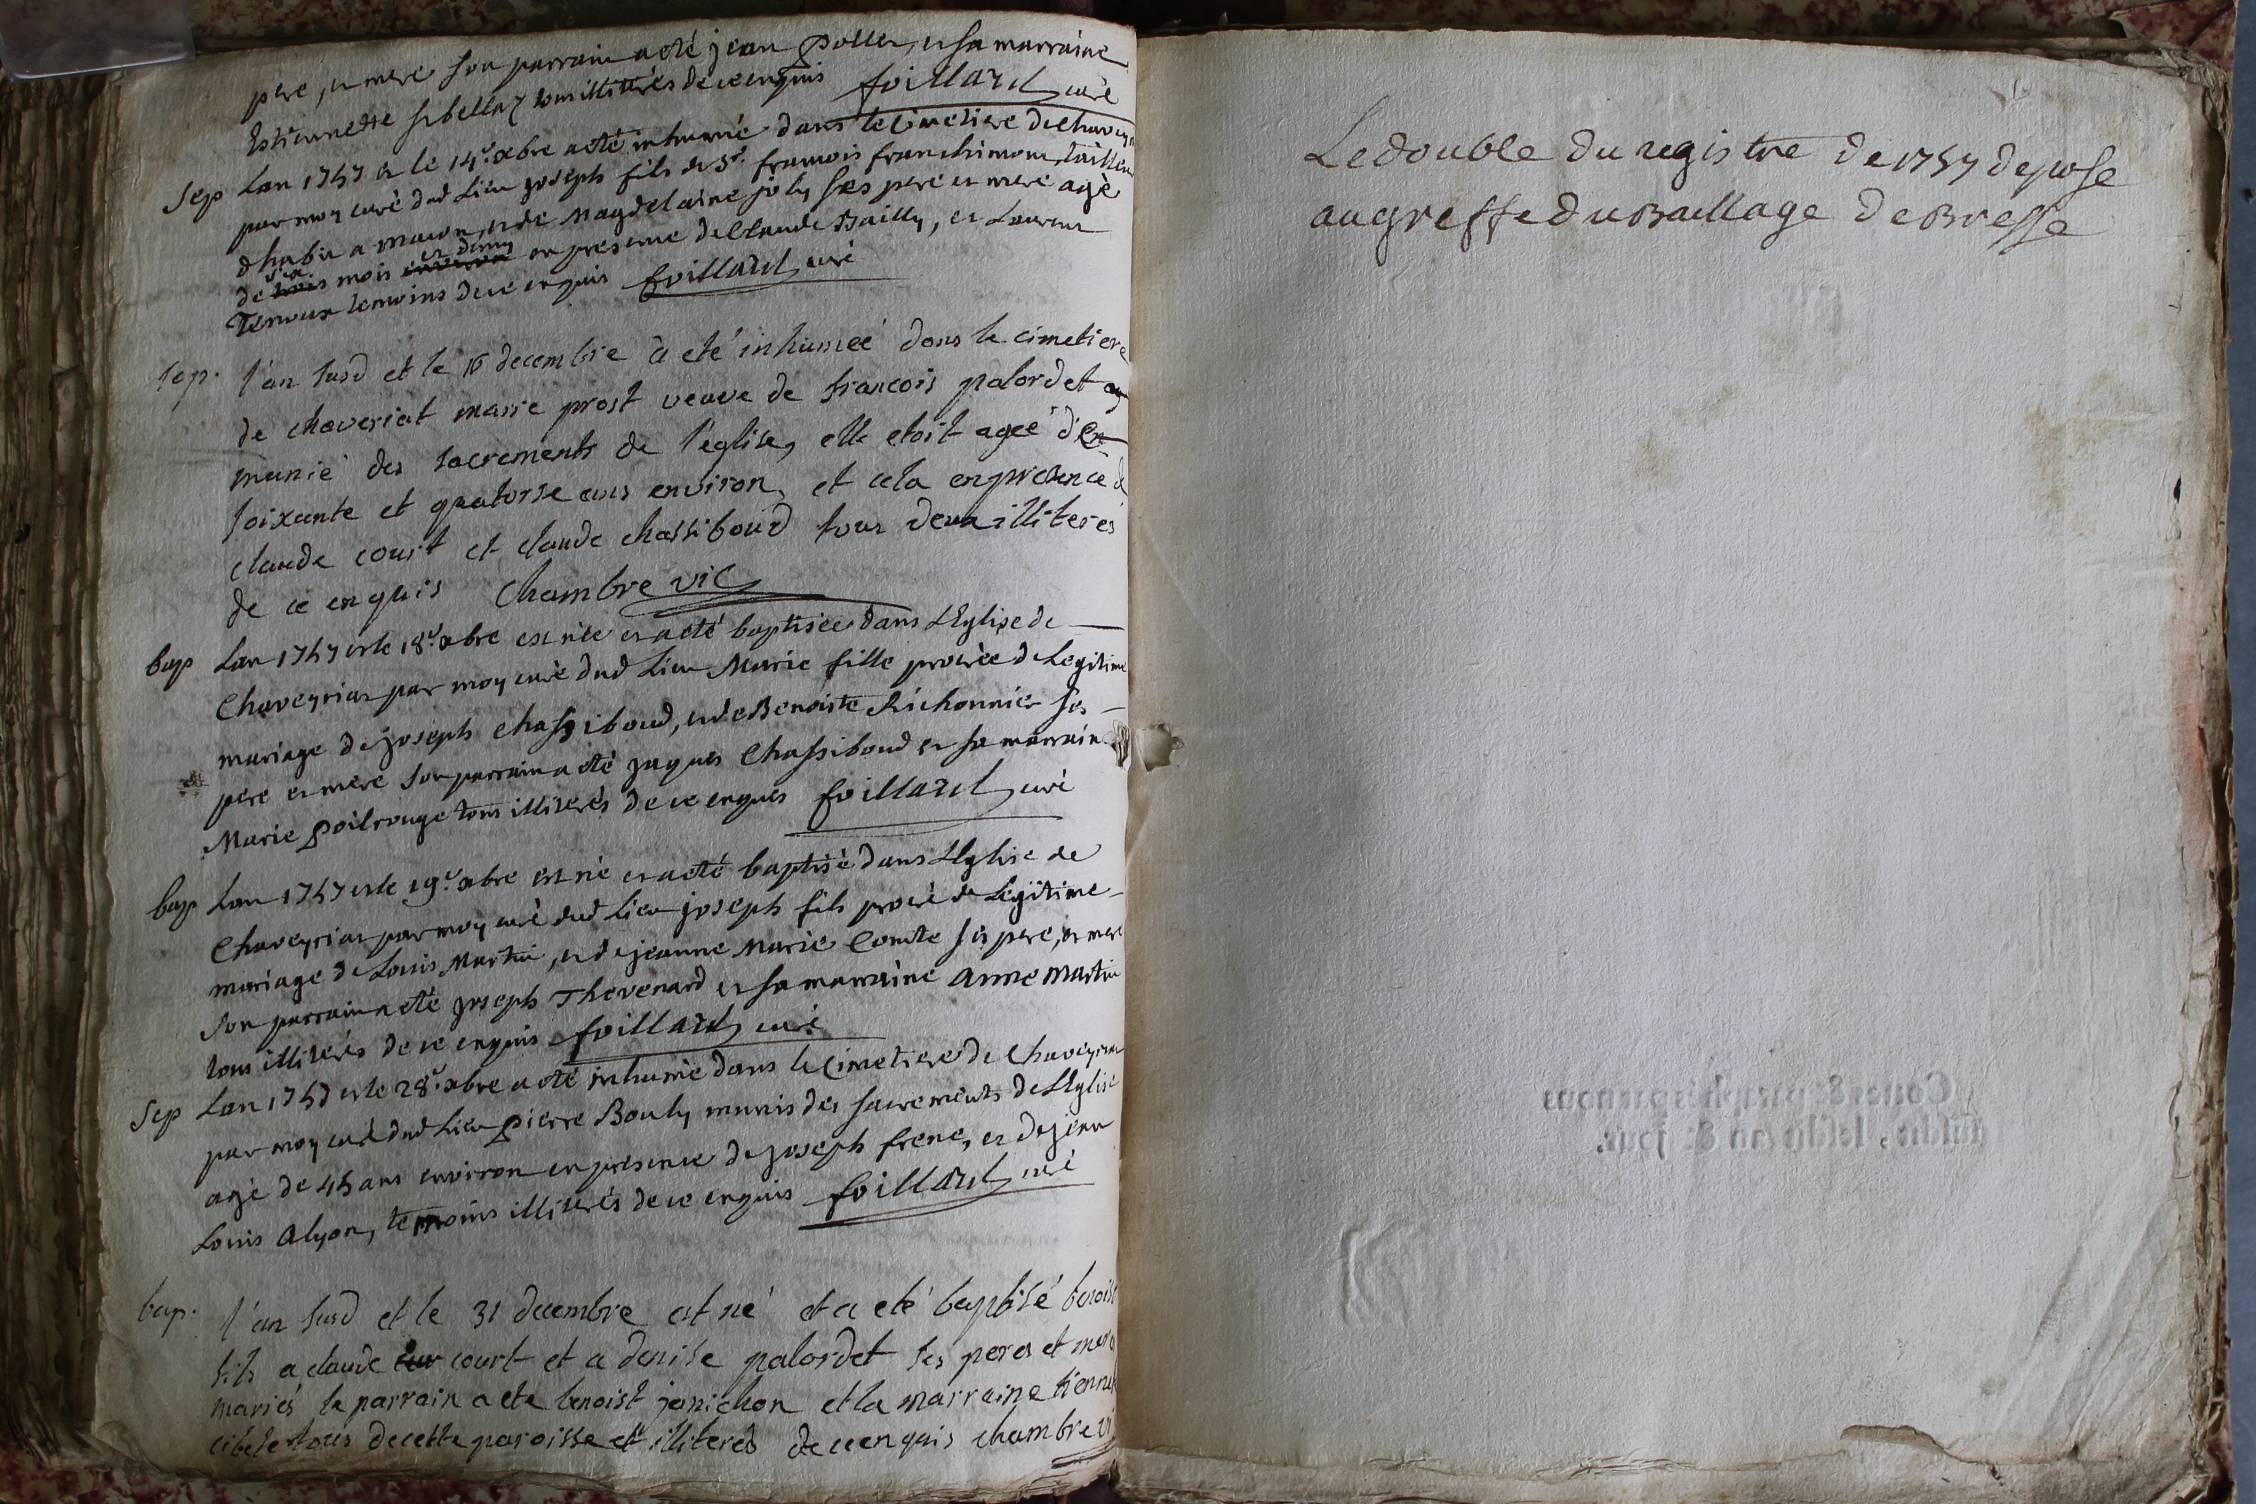 pere, et mere son parrain a eté jean poller, et sa marraine
Estiennette sibellaz tous illiterés de ce enquis foillard curé
Sep Lan 1757 et le 14e xbre a eté inhumé dans le Cimetiere de Chaveyri
par moy curé dud Lieu joseph fils de Sr francois franchimont tailleur
dhabit a macon, et de Magdelaine joly ses pere et mere agé
de six trois mois et demy environ en presence de Claude Bailly, et Laurent
Tenoux temoins de ce enquis foillard curé
sep. l'an susd et le 16 decembre a eté inhumeé dans le cimetiere
de chaveriat marie prost veuve de francois palordet
munie des sacrements de l'eglise, elle etoit ageé d'en
soixante et quatorse ans environ, et cela en presence d
claude court et claude chassiboud tous deux illiterés
de ce enquis Chambre vic
bap Lan 1757 et le 18e xbre est née et a eté baptisée dans L'Eglise de
Chaveyriat par moy curé dud Lieu Marie fille procrée de Legitime
mariage de joseph Chassiboud, et de Benoiste Richonnier ses
pere et mere son parrain a eté jaques Chassiboud et sa marraine
Marie poilrouge tous illiterés de ce enquis foillard curé
bap Lan 1757 et le 19e xbre est né et a eté baptisé dans L'Eglise de
Chaveyriat par moy curé dud Lieu joseph fils procré de Legitime
mariage de Louis Martin, et de jeanne Marie Comte ses pere, et mere
son parrain a eté joseph Thevenard et sa marraine anne martin
tous illiterés de ce enquis foillard curé
Sep Lan 1757 et le 28e xbre a eté inhumé dans le Cimetiere de Chaveyriat
par moy curé dud Lieu pierre Bouly munis des sacrements de L'Eglise
agé de 45 ans environ en presence de joseph frene, et de jean
Louis alyon, temoins illiterés de ce enquis foillard curé
bap. l'an susd et le 31 decembre est né et a eté baptisé benoist
fils a claude cur court et a denise palordet ses peres et mere
mariés le parrain a ete benoist janichon et la marraine tienne
cibele tous de cette paroisse et illiterés de ce enquis chambre vi
Le double du registre de 1757 depose
au greffe du Baillage de Bresse
Cottes & paraphés par nous
susdit, lesdits an & jour.